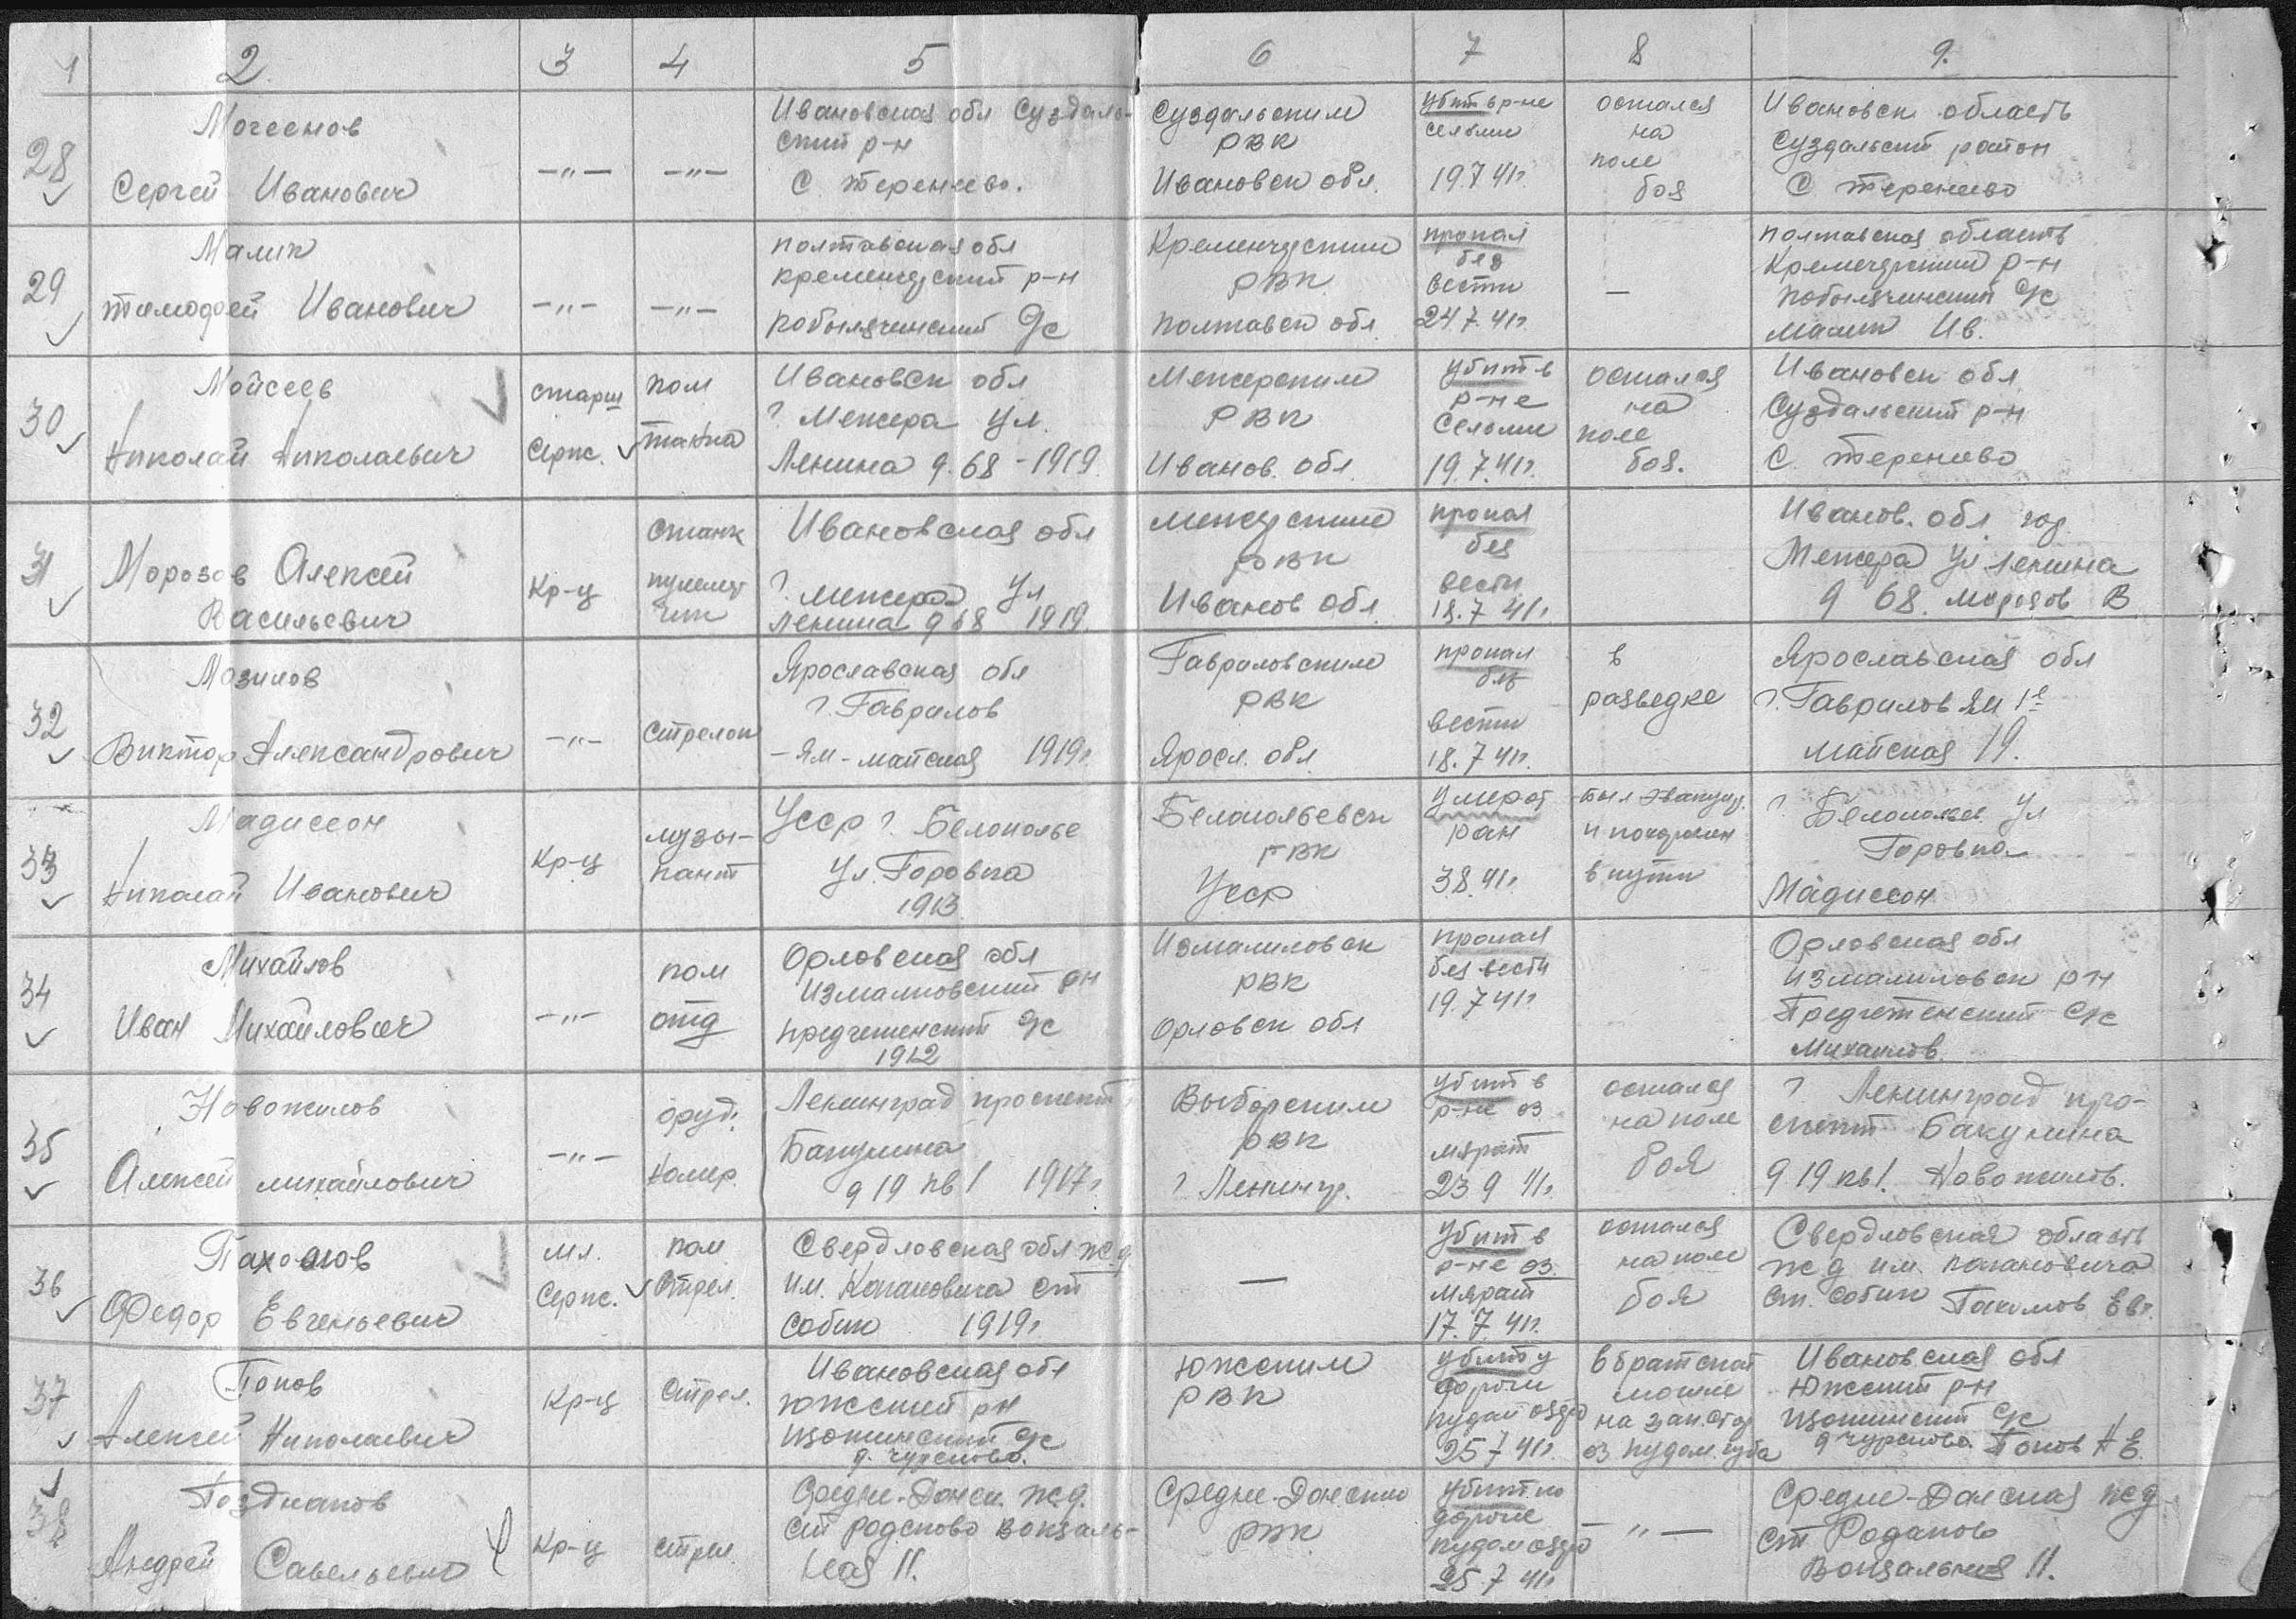 1 2 3 4 5 6 7 8 9.
28 Мочеснов Сергей Иванович —"— —"— Ивановская обл Суздаль-
ский р-н
С Теренеево.
Суздальским
РВК
Ивановск обл.
убит в р-не
сельми
19.7 41г.
остался
на
поле
боя
Ивановск область
Суздальский район
С Теренеево
29 Малик
Тимофей Иванович —"— —"—
Полтавская обл
Кременчугский р-н
с/с
Кременчугским
РВК
Полтавск обл
пропал
без
вести
24.7.41г.
—
Полтавская область
Кременчугский р-н
с/с
Малик Ив.
30 Мойсеев
Николай Николаевич
старш
Серж.
пом
Ивановск обл
г. Мстера ул.
Ленина д. 68 - 1919
РВК
Иванов. обл.
убит в
р-не
Сельми
19.7.41г.
остался
на
поле
боя.
Ивановск обл
Суздальский р-н
С. Теренеево
31 Морозов Алексей
Васильевич
Кр-ц
станк
пулемет
чик
Ивановская обл
г. Мстера ул
Ленина д 68 1919.
РВК
Иванов обл.
пропал
без
вести
18.7 41г.
Иванов. обл. гор.
Мстера ул Ленина
д 68. Морозов В
32 Мазилов
Виктор Александрович —"— стрелок
Ярославская обл
г. Гаврилов
- Ям - майская 1919г.
Гавриловским
РВК
Яросл. обл.
пропал
без
вести
18.7 41г.
в
разведке
Ярославская обл
г. Гаврилов Ям 1е
майская 19.
33 Мадиссон
Николай Иванович
Кр-ц
музы-
кант
УССР г. Белополье
ул. Горовка
1913
РВК
УССР
умер от
ран
3.8.41г.
был эвакуир.
и похоронен
в пути
г. Белополье ул
Горовка
Мадиссон
34 Михайлов
Иван Михайлович —"—
пом
отд
Орловская обл
Измалковский рн
с/с
1912
РВК
Орловск обл
пропал
без вести
19.7 41г
Орловская обл
рн
с/с
Михайлов
35 Новожилов
Алексей Михайлович —"—
оруд.
номер.
Ленинград проспект
Бакунина
д 19 кв 1 1917г.
Выборгским
РВК
г Ленингр.
убит в
р-не оз
Мярат
23 9 41г.
остался
на поле
боя
г Ленинград про-
спект Бакунина
д 19 кв 1. Новожилов.
36 Пахомов
Федор Евгеньевич
мл.
Серж.
пом
Стрел.
Свердловская обл ж.д.
им. Кагановича ст
Сабик 1919г
—
убит в
р-не оз.
Мярат
17.7.41г.
остался
на поле
боя
Свердловская область
ж д им. Кагановича
ст. Сабик Пахомов Евг.
37 Попов
Алексей Николаевич
Кр-ц Стрел.
Ивановская обл
Южский рн
с/с
д.
Южским
РВК
убит у
дороги
25 7 41г.
в братской
могиле
на
оз
Ивановская обл
Южский рн
с/с
д Попов Н Е.
38 Поздняков
Андрей Савельевич
Кр-ц стрел.
Средне-Донск. ж.д.
ст Родаково вокзаль-
ная 11.
Средне-Донским
РВК
убит по
дороге
25 7 41г
— " —
Средне-Донская ж д
ст Родаково
Вокзальная 11.